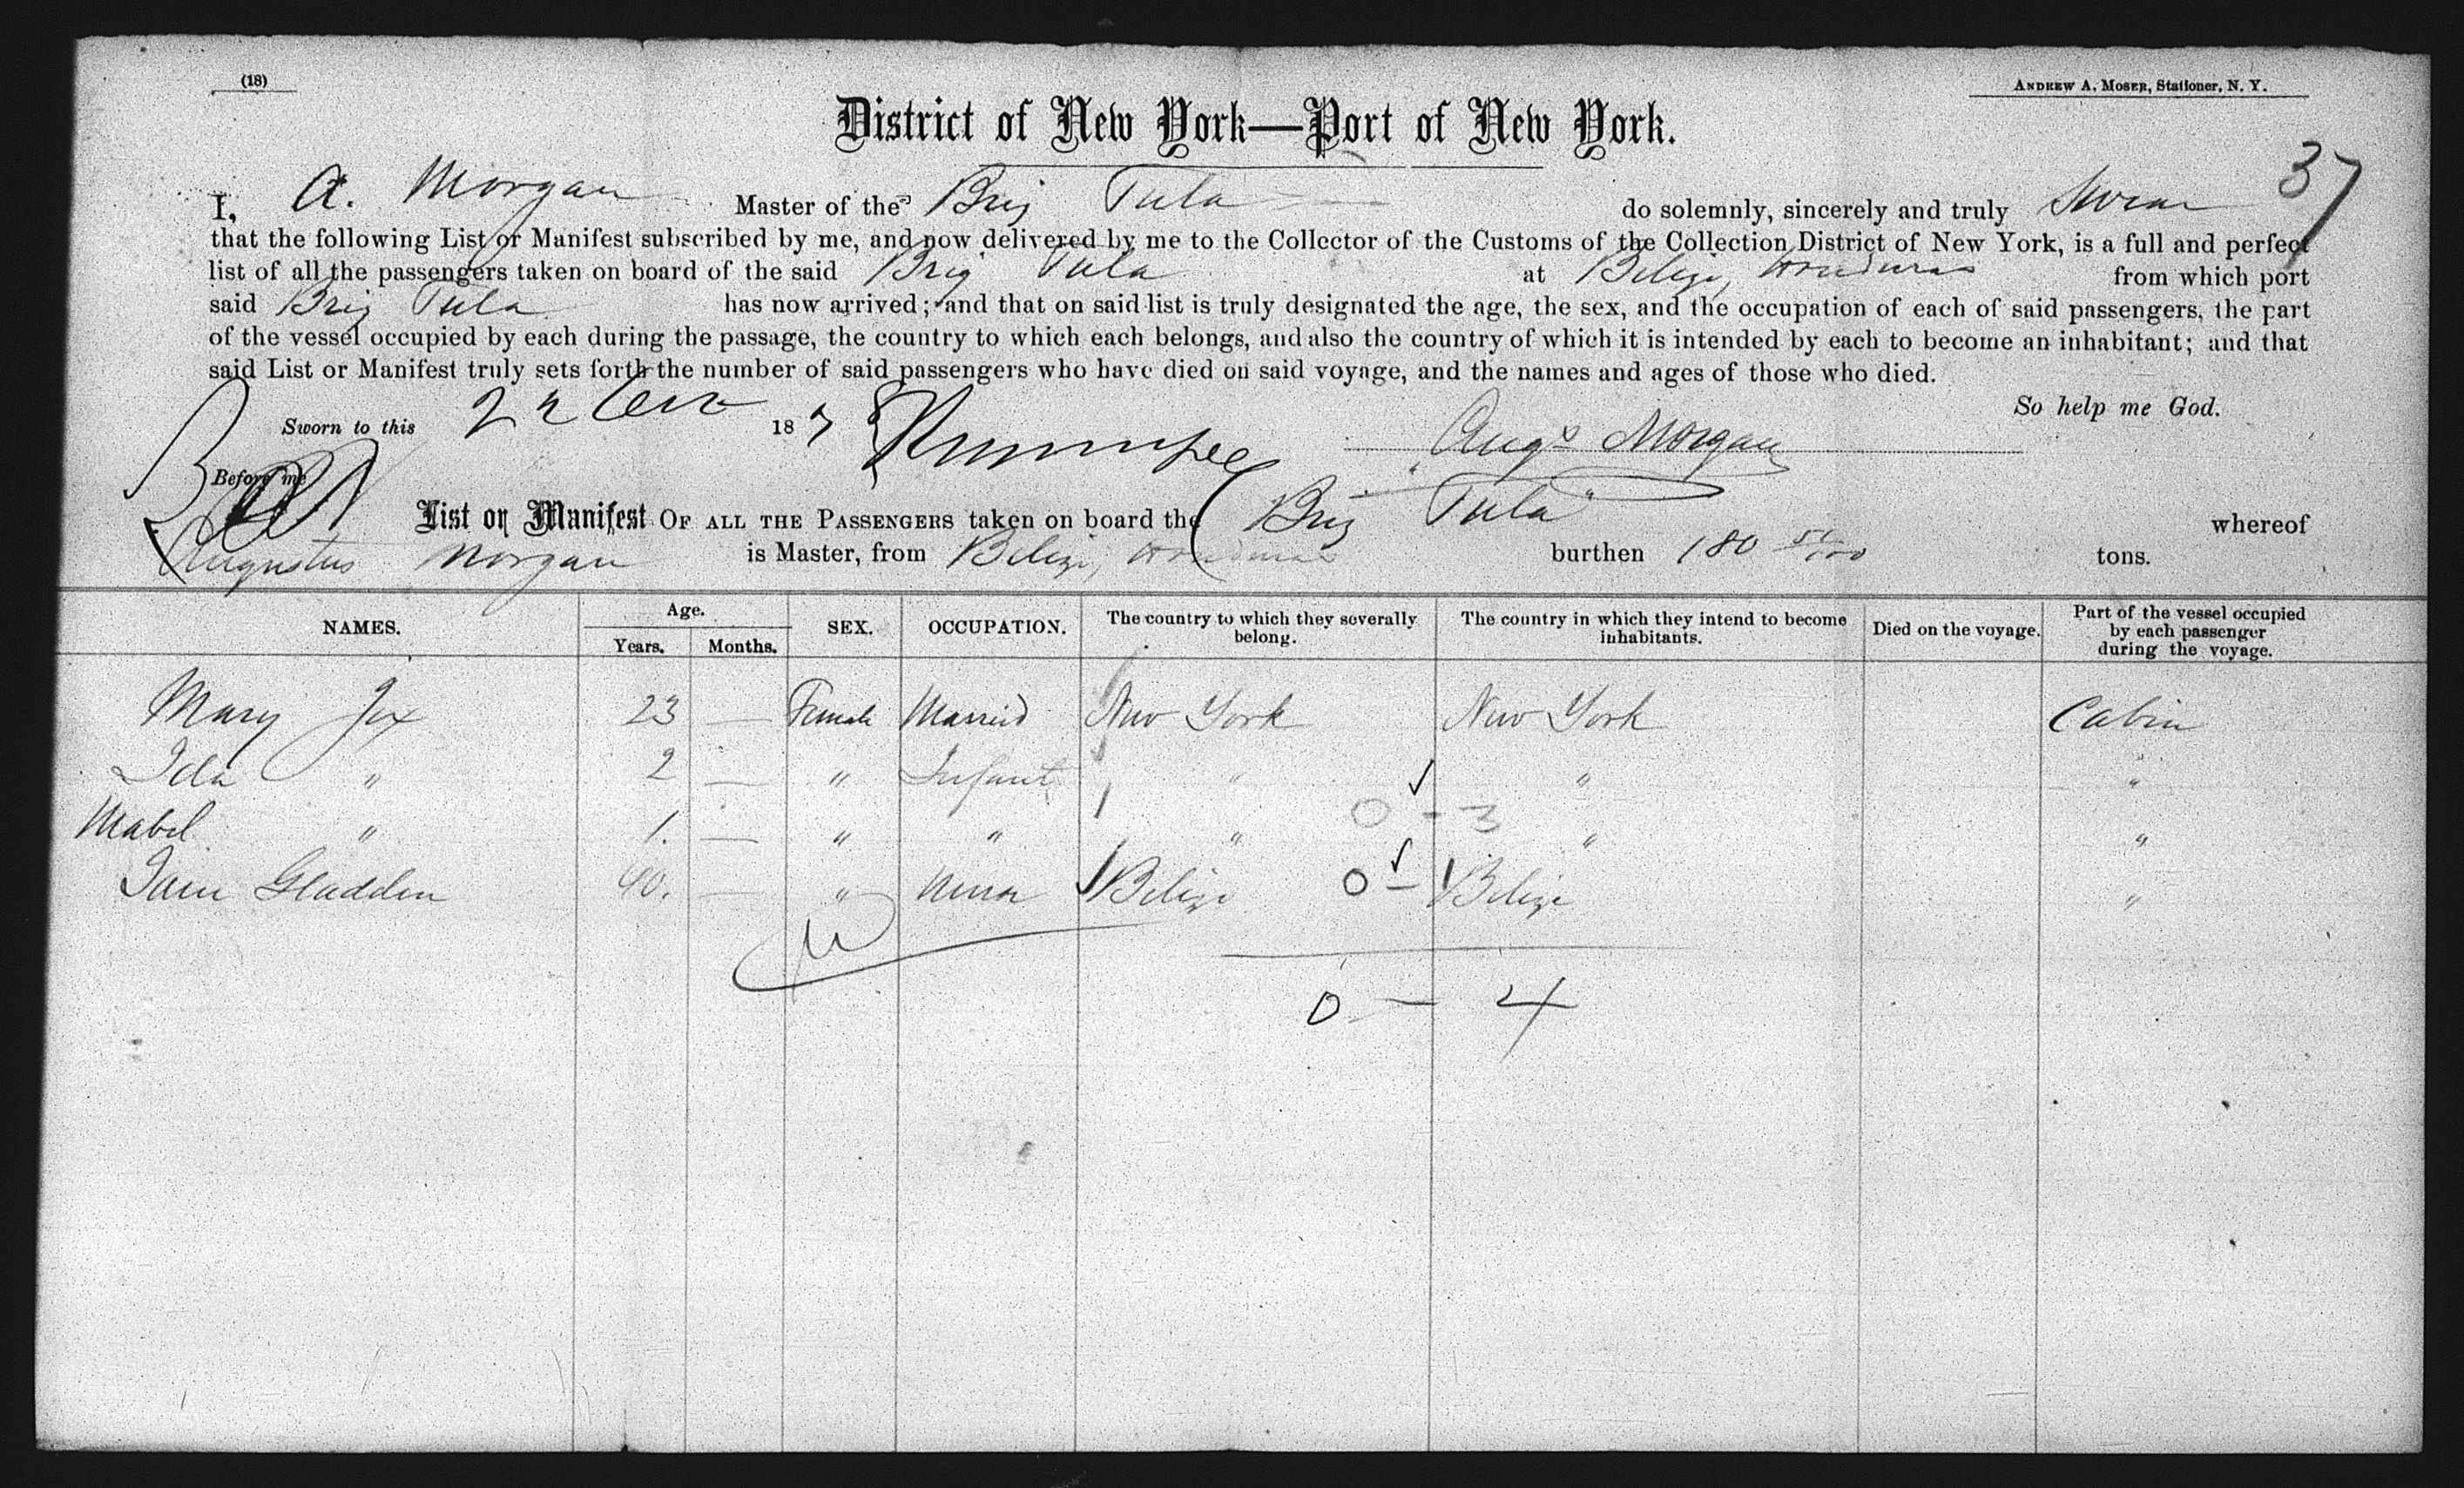 (18)
ANDREW A. MOSER, Stationer, N. Y.
District of New York—Port of New York.
37
I, A. Morgan Master of the Brig Tula do solemnly, sincerely and truly Swear
that the following List or Manifest subscribed by me, and now delivered by me to the Collector of the Customs of the Collection District of New York, is a full and perfect
list of all the passengers taken on board of the said Brig Tula at Belize, Honduras from which port
said Brig Tula has now arrived; and that on said list is truly designated the age, the sex, and the occupation of each of said passengers, the part
of the vessel occupied by each during the passage, the country to which each belongs, and also the country of which it is intended by each to become an inhabitant; and that
said List or Manifest truly sets forth the number of said passengers who have died on said voyage, and the names and ages of those who died.
So help me God.
Sworn to this 22 187
Augs Morgan
Before me
List or Manifest OF ALL THE PASSENGERS taken on board the Brig "Tula" whereof
Augustus Morgan is Master, from Belize, Honduras burthen 180 tons.
NAMES. Age. Years. Months. SEX. OCCUPATION. The country to which they severally belong. The country in which they intend to become inhabitants. Died on the voyage. Part of the vessel occupied by each passenger during the voyage.
Mary 23 — Female Married New York New York Cabin
Ida " 2 — " Infant " " "
Mabel " 1. — " " " 0 - 3 " "
Jane Gladden 40. — " Belize 0 - 1 Belize "
0 — 4